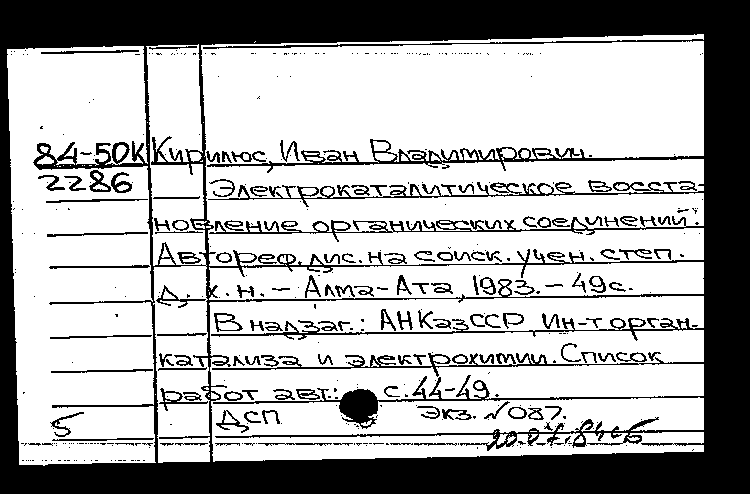 84-50К Кирилюс, Иван Владимирович.
2286 Электрокаталитическое восста-
новление органических соединений:
Автореф. дис. на соиск. учен. степ.
д. х. н. – Алма-Ата, 1983. – 49с.
В надзаг.: АН КазССР, Ин-т орган.
катализа и электрохимии. Список
работ авт.: с. 44-49.
5 ДСП экз. №087.
20.07.84